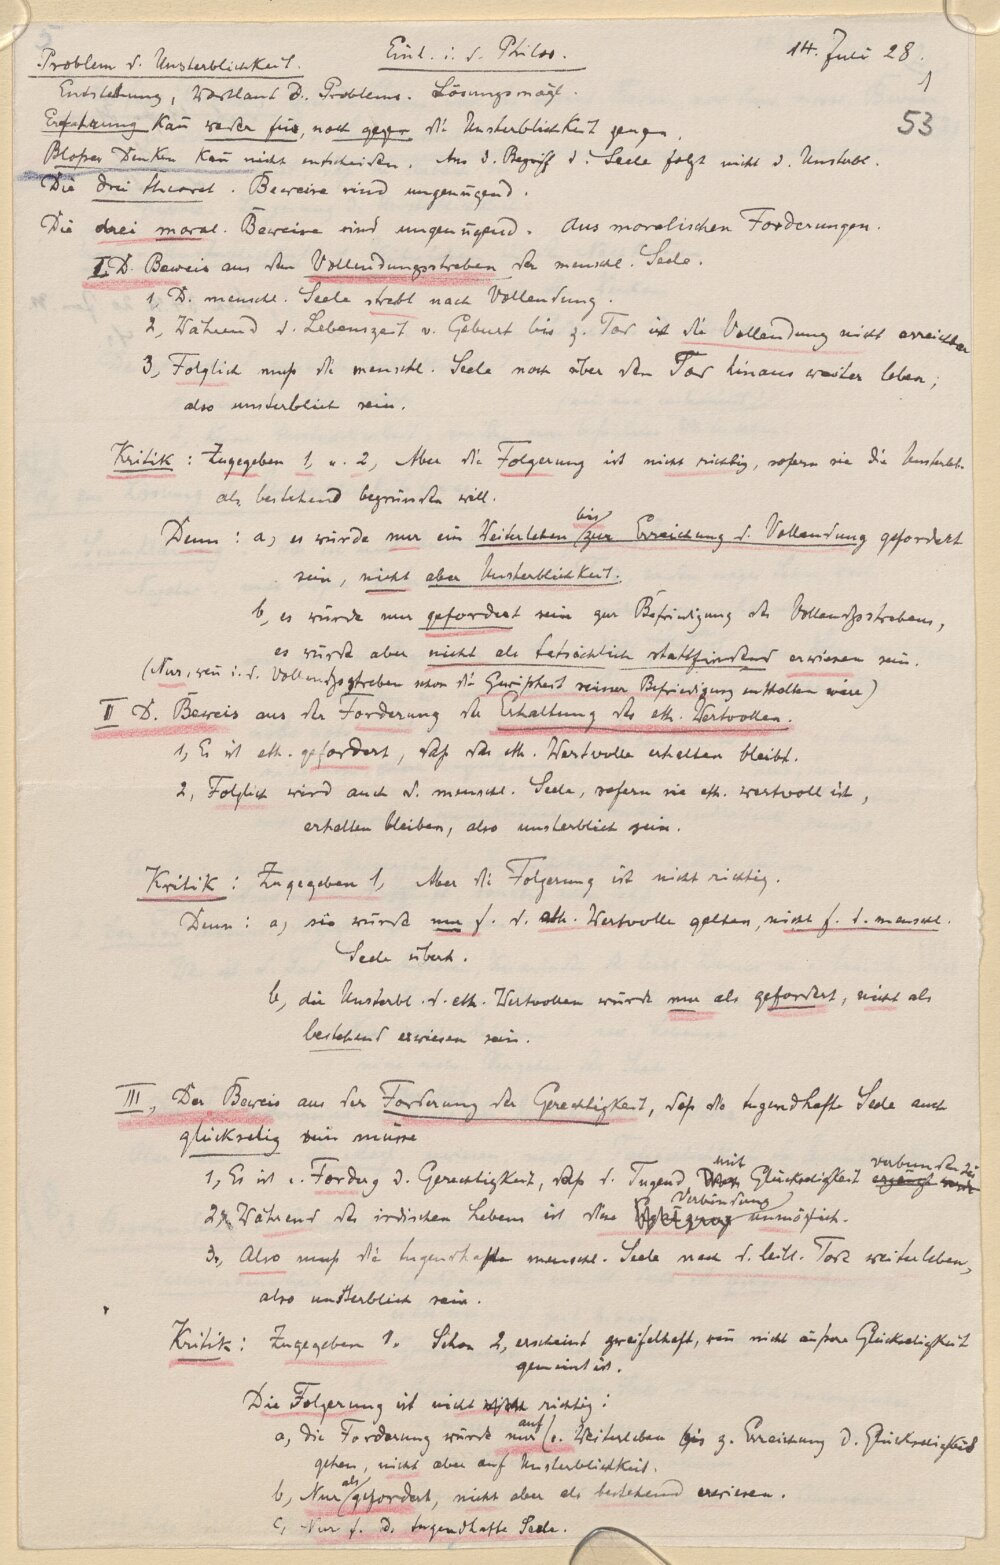 Problem d. Unsterblichkeit. Einl. i. d. Philos. 14. Juli 28.
1
Entstehung, Wortlaut d. Problems. Lösungsmögl.
53
Erfahrung kann weder für, noch gegen die Unsterblichkeit zeugen.
Bloßes Denken kann nicht entscheiden. Aus d. Begriff d. Seele folgt nicht d. Unsterbl.
Die drei theoret. Beweise sind ungenügend.
Die drei moral. Beweise sind ungenügend. Aus moralischen Forderungen.
I. D. Beweis aus dem Vollendungsstreben der menschl. Seele.
1, D. menschl. Seele strebt nach Vollendung.
2, Während d. Lebenszeit v. Geburt bis z. Tod ist die Vollendung nicht erreichbar
3, Folglich muß die menschl. Seele noch über den Tod hinaus weiter leben,
also unsterblich sein.
Kritik: Zugegeben 1, u. 2, Aber die Folgerung ist nicht richtig, sofern sie die Unsterbl.
als bestehend begründen will.
Denn: a, es würde nur ein Weiterleben bis zur Erreichung d. Vollendung gefordert
sein, nicht aber Unsterblichkeit.
b, es würde nur gefordert sein zur Befriedigung des Vollendgsstrebens,
es würde aber nicht als tatsächlich stattfindend erwiesen sein.
(Nur, wenn i. d. Vollendgsstreben schon die Gewißheit seiner Befriedigung enthalten wäre)
II D. Beweis aus der Forderung der Erhaltung des eth. Wertvollen.
1, Es ist eth. gefordert, daß das eth. Wertvolle erhalten bleibt.
2, Folglich wird auch d. menschl. Seele, sofern sie eth. wertvoll ist,
erhalten bleiben, also unsterblich sein.
Kritik: Zugegeben 1, Aber die Folgerung ist nicht richtig.
Denn: a, sie würde nur f. d. eth. Wertvolle gelten, nicht f. d. menschl.
Seele überh.
b, die Unsterbl. d. eth. Wertvollen würde nur als gefordert, nicht als
bestehend erwiesen sein.
III, Der Beweis aus der Forderung der Gerechtigkeit, daß die tugendhafte Seele auch
glückselig sein müsse
1, Es ist e. Forderg d. Gerechtigkeit, daß d. Tugend mit Glückseligkeit verbunden sei
2, Während des irdischen Lebens ist diese Verbindung unmöglich.
3, Also muß die tugendhafte menschl. Seele nach d. leibl. Tode weiterleben,
also unsterblich sein.
Kritik: Zugegeben 1. Schon 2, erscheint zweifelhaft, wenn nicht äußere Glückseligkeit
gemeint ist.
Die Folgerung ist nicht richtig:
a, die Forderung würde nur auf e. Weiterleben bis z. Erreichung d. Glückseligkeit
gehen, nicht aber auf Unsterblichkeit.
b, Nur als gefordert, nicht aber als bestehend erwiesen.
c, Nur f. d. tugendhafte Seele.